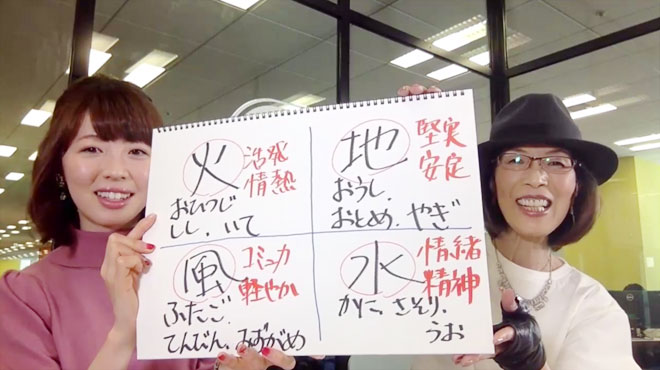 火 活発
情熱
おひつじ
しし、いて
地 堅実
安定
おうし、
おとめ、やぎ
風 コミュ力
軽やか
ふたご、
てんびん、みずがめ
水 情緒
精神
かに、さそり、
うお